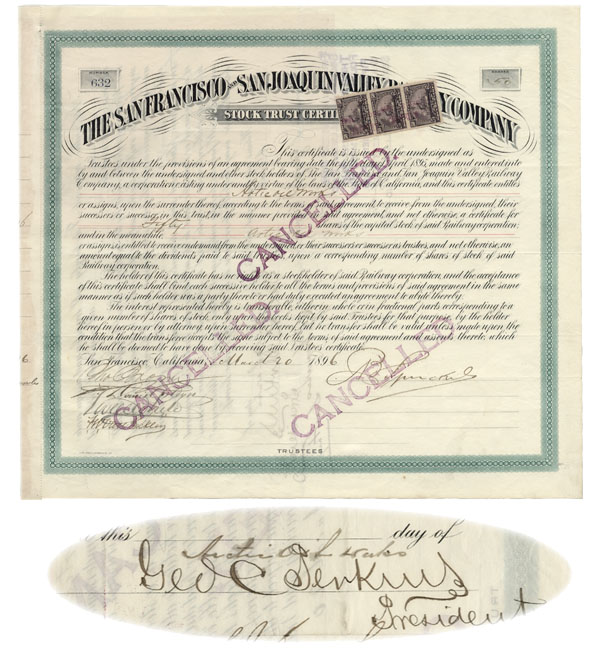 NUMBER
632
THE SAN FRANCISCO AND SAN JOAQUIN VALLEY Y COMPANY
STOCK TRUST CERTI
This certificate is issued by the undersigned as
trustees under the provisions of an agreement bearing date the day of April 1895, made and entered into
by and between the undersigned and other stock holders of the San and San Joaquin Valley Railway
Company, a corporation existing under and by virtue of the laws of of California, and this certificate entitles
or assigns, upon the surrender thereof, according to the terms agreement, to receive from the undersigned, their
successors or successors in this trust, in the manner provided said agreement, and not otherwise, a certificate for
Fifty shares of the capital stock of said Railway corporation;
and in the meantime
or assigns is entitled to receive on demand from the undersigned, or their successors or successors as trustees, and not otherwise, an
amount equal to the dividends paid to said upon a corresponding number of shares of stock of said
Railway corporation.
The holder of this certificate has no as a stockholder of said Railway corporation, and the acceptance
of this certificate shall bind each successive holder to all the terms and provisions of said agreement in the same
manner as if such holder was a party thereto or had duly executed an agreement to abide thereby.
The interest represented hereby is transferable, either in whole or in fractional parts corresponding to a
given number of shares of stock, only upon the kept by said Trustees for that purpose, by the holder
hereof in person or by attorney upon hereof, but no transfer shall be valid unless made upon the
condition that the transferee receives the same subject to the terms of said agreement and assents thereto, which
he shall be deemed to have done by receiving said Trustees certificate.
San Francisco, California, March 20 1896
CANCELLED.
CANCELLED
CANCELLED
TRUSTEES
this day of
Geo C Perkins
President